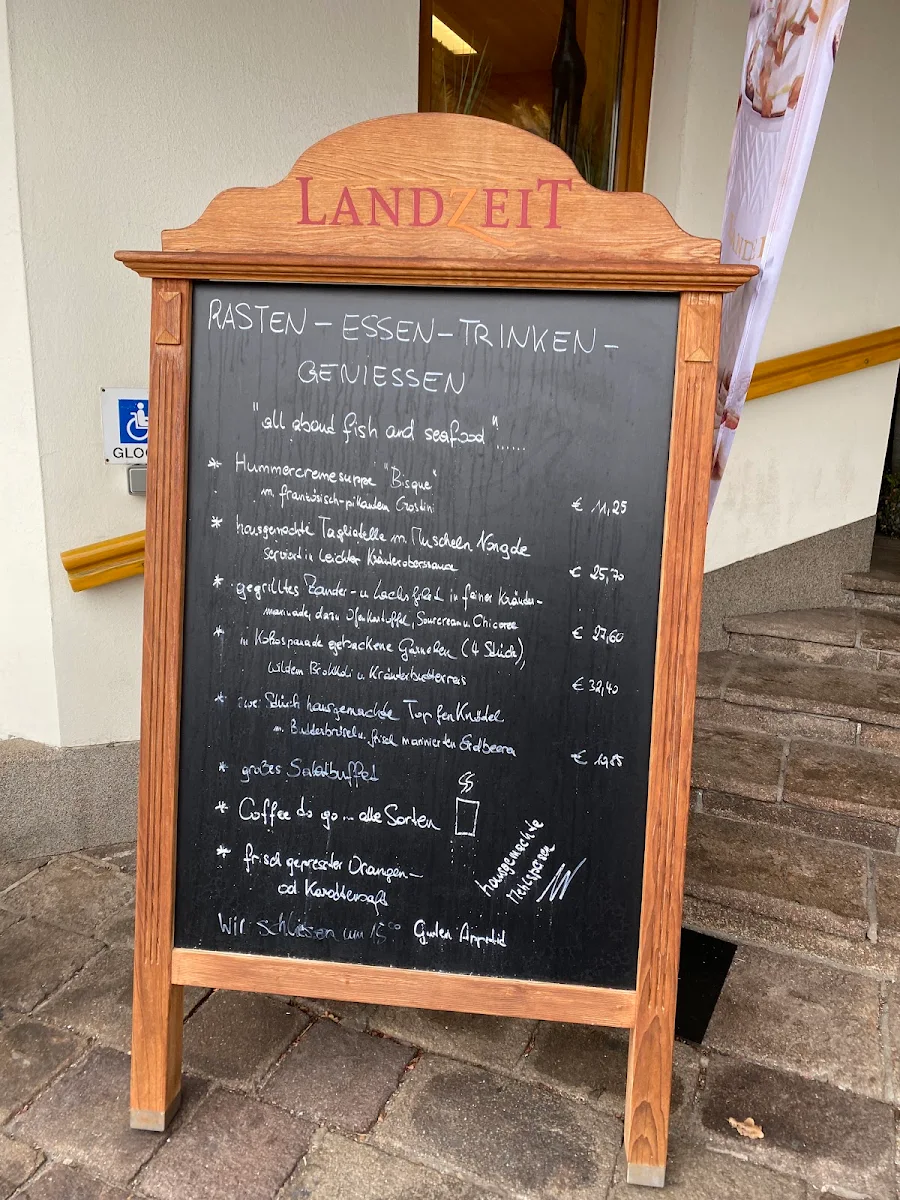 LANDZEIT
RASTEN - ESSEN - TRINKEN -
GENIESSEN
"all aboud fish and seafood"......
* Hummercremesuppe "Bisque"
m. französisch-pikanten Crostini € 11,25
* hausgemachte Tagliatelle m. Muscheln
serviert in leichter Kräuterobersauce € 25,70
* gegrilltes Zander- u Lachsfilet in feiner Kräuter-
marinade, dazu Ofenkartoffel, Sourcream u. Chicoree € 27,60
* in Kokospanade gebackene Garnelen (4 Stück),
wildem Brokkoli u. Kräuterbutterreis € 32,40
* zwei Stück hausgemachte Topfenknödel
m. Butterbrösel u. frisch marinierten Erdbeeren €
* großes Salatbuffet
* Coffee to go ... alle Sorten
* frisch gepresster Orangen-
od Karottensaft
hausgemachte
Mehlspeisen
Wir schliesen um 15⁰⁰ Guten Appetit
GLO